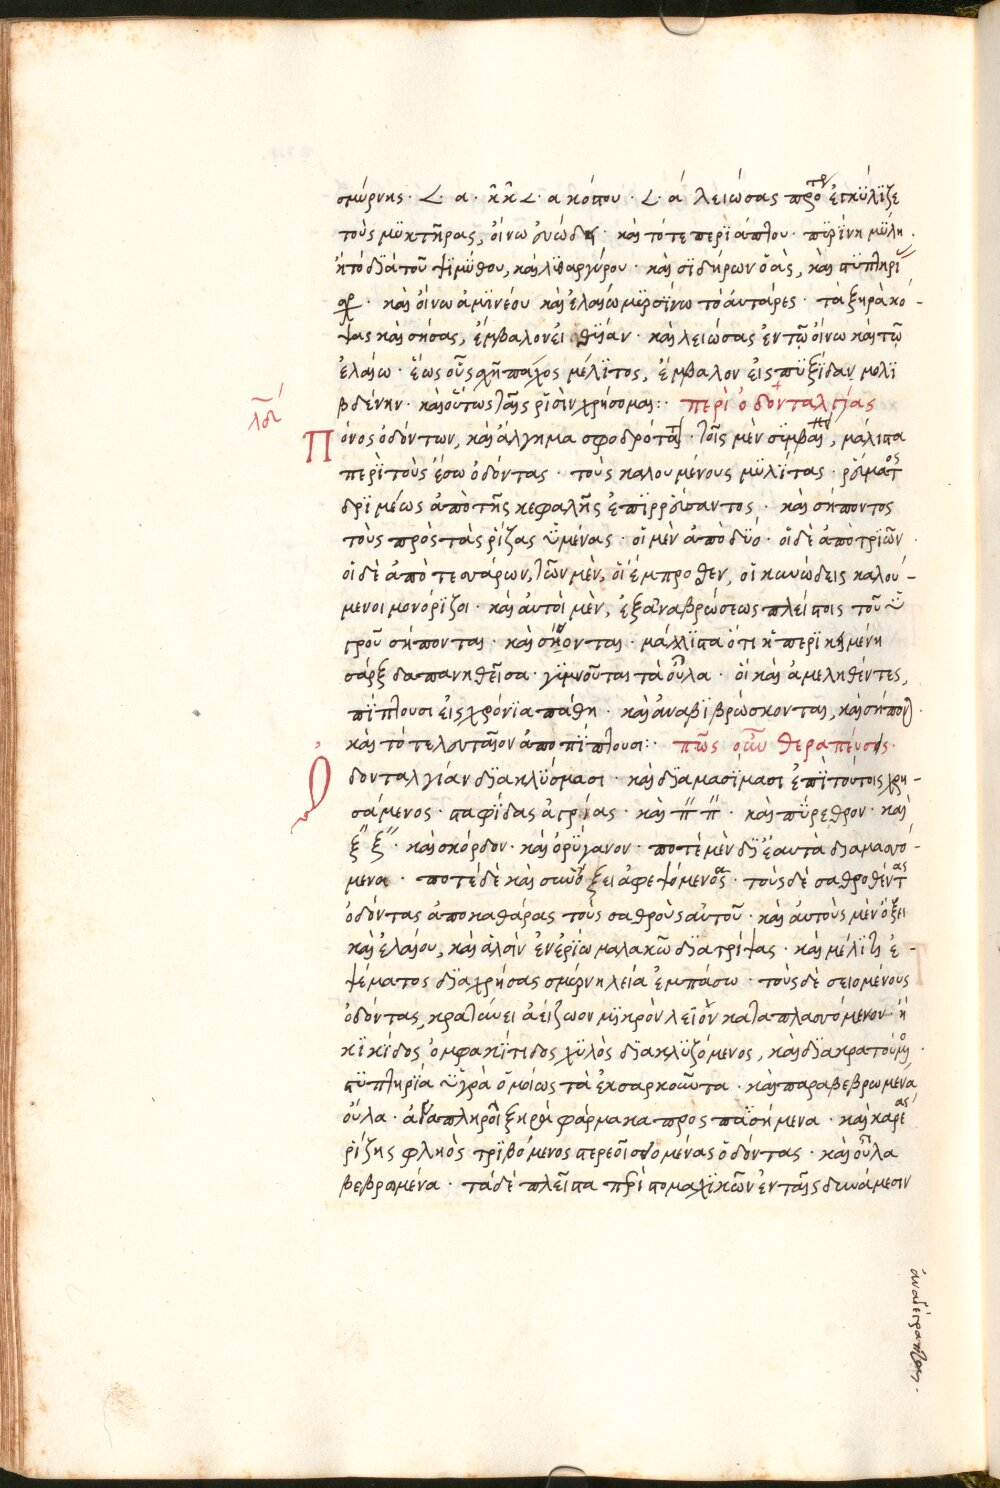 σμύρνης · 𐅻 α · κ̂κ̂ 𐅻 · α κόπου · 𐅻 · ά λειώσας πρό ἐγκύλϊζε
τοὺς μϋκτῆρας, οἴνω ἐυώδη · καὶ τότε περϊάπλου · πϋρίνη μϋλη ·
ἡ τὸ δϊὰ τοῦ ψϊμϋθου, καὶ λϊθαργύρου · καὶ σϊδήρων σ̈κὰς, καὶ στϋπτηρϊ
· καὶ οἴνω ἀμϊνέου καὶ ἐλαίω μϋρσίνω τὸ ἀυταρές · τὰ ξηρὰ κό-
ψας καὶ σήσας, ἔμβαλον εἰ θϋϊάν · καὶ λειώσας ἐν τῶ οἴνω καὶ τῶ
ἐλαίω · ἕως οὗ σχῆ πάχος μέλϊτος, ἔμβαλον εἰς πϋξίδαν μολϊ
βδένην · καὶ οὕτως ταῖς ρϊσὶν χρήσομαι:· περὶ ὀδονταλγίας
λδ
Πόνος ὀδόντων, καὶ ἄλγημα σφοδρότα · τοῖς μὲν σϋμβαί, μάλιστα
περὶ τοὺς ἔσω ὀδόντας · τοὺς καλουμένους μϋλίτας · ρεύματος
δρϊμέως ἀπὸ τῆς κεφαλῆς ἐπϊρρεύσαντος · καὶ σήποντος
τοὺς πρὸς τὰς ρίζας ϋμένας · οἱ μὲν ἀπὸ δϋό · οἱ δὲ ἀπὸ τριῶν ·
οἱ δὲ ἀπὸ τεσσάρων, τῶν μὲν, οἱ ἔμπροθεν, οἱ κυνώδεις καλού-
μενοι μονόρϊζοι · καὶ αὐτοὶ μὲν, ἐξ ἀναβρώσεως πλείστοις τοῦ ϋ
γροῦ σήπονται · καὶ σήονται · μάλλϊστα ὅτι ἡ περϊκειμένη
σάρξ δαπανηθεῖσα · γϋμνοῦται τὰ οὖλα · οἱ καὶ ἀμεληθέντες,
πϊπτουσι εἰς χρόνϊα πάθη · καὶ ἀναβϊβρώσκονται, καὶ σήπονται ·
καὶ τὸ τελουταῖον ἀποπϊπτουσι:· πῶς οὖν θεραπέυσεις ·
Ὀδονταλγίαν δϊακλϋσμασι · καὶ δϊαμασίμασι ἐπϊ τούτοις χρη-
σάμενος · σταφϊδας ἀγρίας · καὶ π̈ π̈ · καὶ πϋρεθρον · καὶ
ξ̈ ξ̈ · καὶ σκόρδον · καὶ ὀρϋγανον · ποτὲ μὲν δϊ ἑαυτὰ δϊαμασσό-
μενα · ποτὲ δὲ καὶ σὺν ὄξει ἀφεψόμενος · τοὺς δὲ σαθροθέντας
ὀδόντας ἀποκαθάρας τοὺς σαθροὺς αὐτοῦ · καὶ αὐτοὺς μὲν ὄξει
καὶ ἐλαίου, καὶ ἁλσὶν ἐν ἐρίω μαλακῶ δϊατρίψας · καὶ μέλϊτι ἑ-
ψέματος δϊαχρήσας σμύρνη λεία ἐμπάσω · τοὺς δὲ σειομένους
ὀδόντας κρατύνει ἀείζωον μικρὸν λεῖον καταπλασσόμενον · ἢ
κϊκίδος ὀμφακίτιδος χϋλὸς δϊακλϋζόμενος, καὶ δϊακρατούμενος ·
στϋπτηρία ϋγρὰ ὁμοίως τὰ ἐκσαρκοῦντα · καὶ παραβεβρωμενά
οὖλα · ἀναπληροῖ ξηρὰ φάρμακα προσπασσήμενα · καὶ καρεας
ρίζης φλιὸς τρϊβόμενος στερεοῖ σειομένας ὀδόντας · καὶ οὖλα
βεβρωμένα · τὰ δὲ πλεῖστα περὶ στομαχϊκῶν ἐν ταῖς δυνάμεσιν